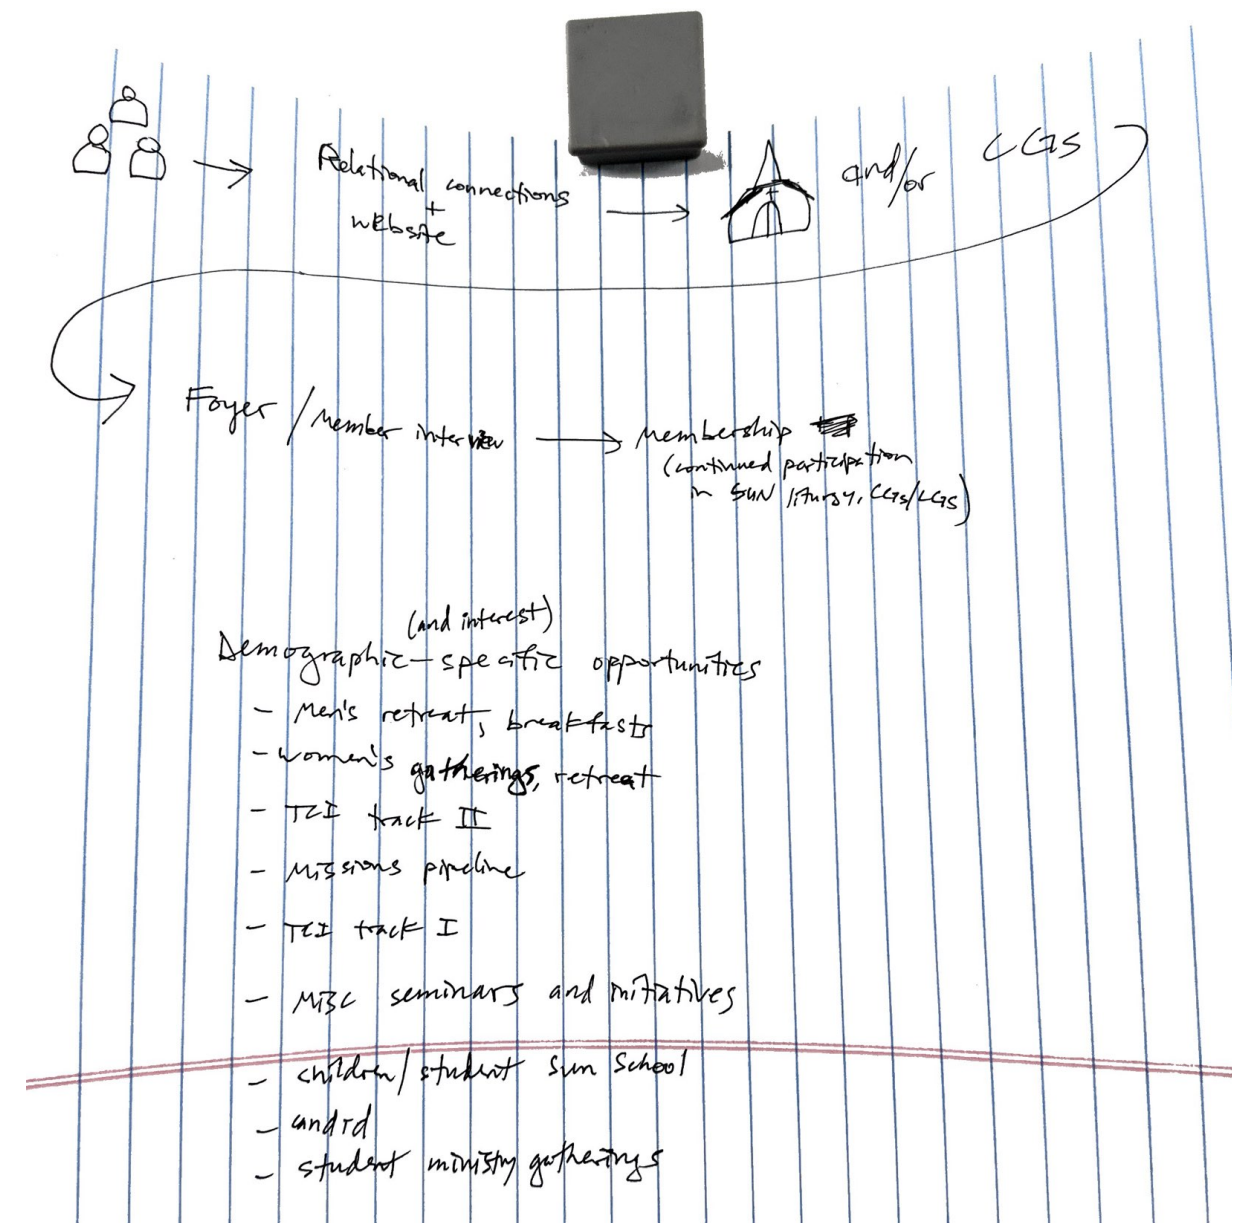 Relational connections
+
website
and/or
CGs
Foyer / Member interview
Membership
(continued participation
in SUN liturgy, CGs/LGs)
(and interest)
Demographic-specific opportunities
- Men's retreat, breakfasts
- women's gatherings, retreat
- TCI track II
- Missions pipeline
- TCI track I
- MBC seminars and initiatives
- children/student Sun School
-
- student ministry gatherings